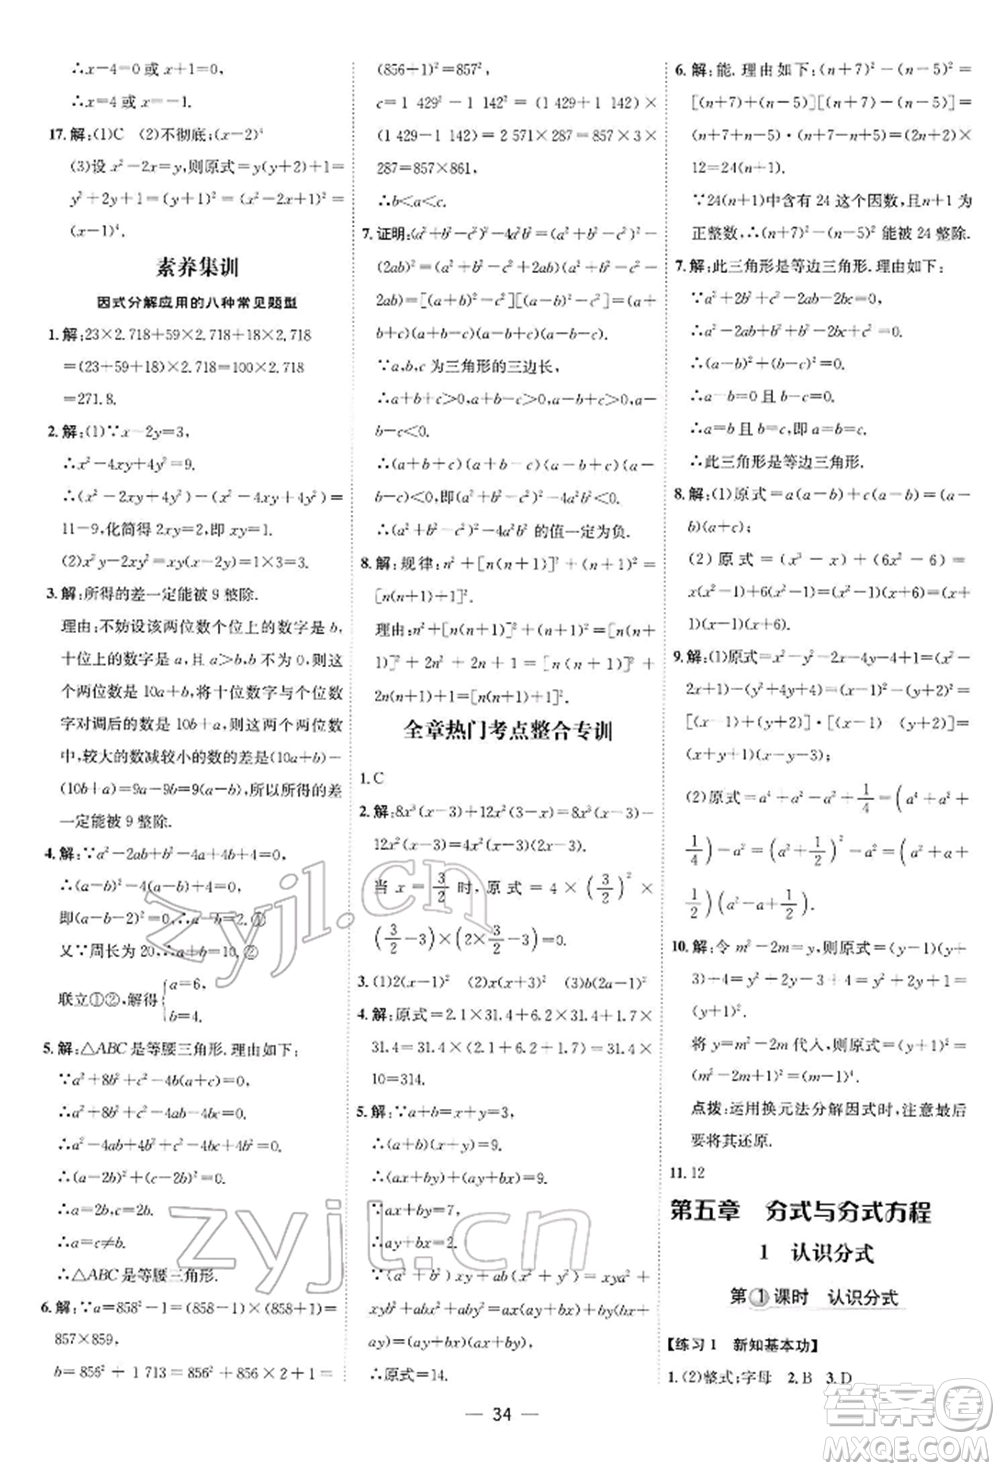 ∴x−4=0 或 x+1=0,
∴x=4 或 x=−1.
17.解:(1)C (2)不彻底;(x−2)⁴
(3)设 x²−2x=y,则原式=y(y+2)+1=
y²+2y+1=(y+1)²=(x²−2x+1)²=
(x−1)⁴.
素养集训
因式分解应用的八种常见题型
1.解:23×2.718+59×2.718+18×2.718
=(23+59+18)×2.718=100×2.718
=271.8.
2.解:(1)∵x−2y=3,
∴x²−4xy+4y²=9.
∴(x²−2xy+4y²)−(x²−4xy+4y²)=
11−9,化简得 2xy=2,即 xy=1.
(2)x²y−2xy²=xy(x−2y)=1×3=3.
3.解:所得的差一定能被 9 整除.
理由:不妨设该两位数个位上的数字是 b,
十位上的数字是 a,且 a>b,b 不为 0,则这
个两位数是 10a+b,将十位数字与个位数
字对调后的数是 10b+a,则这两个两位数
中,较大的数减较小的数的差是(10a+b)−
(10b+a)=9a−9b=9(a−b),所得的差
一定能被 9 整除.
4.解:∵a²−2ab+b²−4a+4b+4=0,
∴(a−b)²−4(a−b)+4=0,
即(a−b−2)²=0,∴a−b=2.①
又∵周长为 20,∴a+b=10.②
联立①②,解得{a=6,
b=4.
5.解:△ABC 是等腰三角形.理由如下:
∵a²+8b²+c²−4b(a+c)=0,
∴a²+8b²+c²−4ab−4bc=0,
∴a²−4ab+4b²+4b²−4bc+c²=0,
∴(a−2b)²+(2b−c)²=0,
∴a−2b=0,2b−c=0,
∴a=2b,c=2b,
∴a=c,
∴△ABC 是等腰三角形.
6.解:∵a=858²−1=(858−1)×(858+1)=
857×859,
b=856²+1 713=856²+2×856+1=
(856+1)²=857²,
c=1 429²−1 142²=(1 429+1 142)×
(1 429−1 142)=2 571×287=857×3×
287=857×861,
∴b<a<c.
7.证明:(a²+b²−c²)²−4a²b²=(a²+b²−c²)²−
(2ab)²=(a²+b²−c²+2ab)(a²+b²−c²−
2ab)=[(a+b)²−c²][(a−b)²−c²]=(a+
b+c)(a+b−c)(a−b+c)(a−b−c).
∵a,b,c 为三角形的三边长,
∴a+b+c>0,a+b−c>0,a−b+c>0,a−
b−c<0.
∴(a+b+c)(a+b−c)(a−b+c)(a−b−
c)<0,即(a²+b²−c²)²−4a²b²<0.
∴(a²+b²−c²)²−4a²b² 的值一定为负.
8.解:规律:n²+[n(n+1)]²+(n+1)²=
[n(n+1)+1]².
理由:n²+[n(n+1)]²+(n+1)²=[n(n+
1)]²+2n²+2n+1=[n(n+1)]²+
2n(n+1)+1=[n(n+1)+1]².
全章热门考点整合专训
1.C
2.解:8x³(x−3)+12x²(3−x)=8x³(x−3)−
12x²(x−3)=4x²(x−3)(2x−3).
当 x=3/2 时,原式=4×(3/2)²×
(3/2−3)×(2×3/2−3)=0.
3.(1)2(x−1)² (2)x(x−1)² (3)b(a−1)²
4.解:原式=2.1×31.4+6.2×31.4+1.7×
31.4=31.4×(2.1+6.2+1.7)=31.4×
10=314.
5.解:∵a+b=x+y=3,
∴(a+b)(x+y)=9.
∴(ax+by)+(bx+ay)=9.
∵ax+by=7,
∴bx+ay=2.
∴(a²+b²)xy+ab(x²+y²)=a²xy+b²xy+
abx²+aby²=(a²xy+abx²)+(b²xy+
aby²)=ax(ay+bx)+by(bx+ay)=
(ay+bx)(ax+by).
∵ax+by=7,bx+ay=2,
∴原式=14.
6.解:能.理由如下:(n+7)²−(n−5)²=
[(n+7)+(n−5)][(n+7)−(n−5)]=
(n+7+n−5)·(n+7−n+5)=(2n+2)×
12=24(n+1).
∵24(n+1)中含有 24 这个因数,(n+1)为
正整数,∴(n+7)²−(n−5)² 能被 24 整除.
7.解:此三角形是等边三角形.理由如下:
∵a²+2b²+c²−2ab−2bc=0,
∴a²−2ab+b²+c²−2bc+b²=0.
∴(a−b)²+(b−c)²=0.
∴a−b=0 且 b−c=0.
∴a=b 且 b=c,∴a=b=c.
∴此三角形是等边三角形.
8.解:(1)原式=a(a−b)+c(a−b)=(a−
b)(a+c).
(2)原式=(x³−x)+(6x²−6)=
x(x²−1)+6(x²−1)=(x²−1)(x+6)=
(x+1)(x−1)(x+6).
9.解:(1)原式=x²−y²−2x−4y−4+1=
(x²−2x+1)−(y²+4y+4)=(x−1)²−
(y+2)²=[(x−1)+(y+2)]·
[(x−1)−(y+2)]=(x−1+y+2)(x−
1−y−2)=(x+y+1)(x−y−3).
(2)原式=a⁴+a²−a²+1/4=(a⁴+a²+
1/4)−a²=(a²+1/2)²−a²=(a²+a+
1/2)(a²−a+1/2).
10.解:令 m²−2m=y,则原式=(y−1)(y+
3)+4=y²+2y−3+4=y²+2y+1=(y+
1)².
将 y=m²−2m 代入,得原式=(m²−
2m+1)²=(m−1)⁴.
点拨:运用换元法分解因式时,注意最后
要将其还原.
11.12
第五章 分式与分式方程
1 认识分式
第1课时 认识分式
【练习1 新知基本功】
1.(2)整式;字母 2.B 3.D
34
zyjl.cn
zyjl.cn
答案圈
MXQE.COM